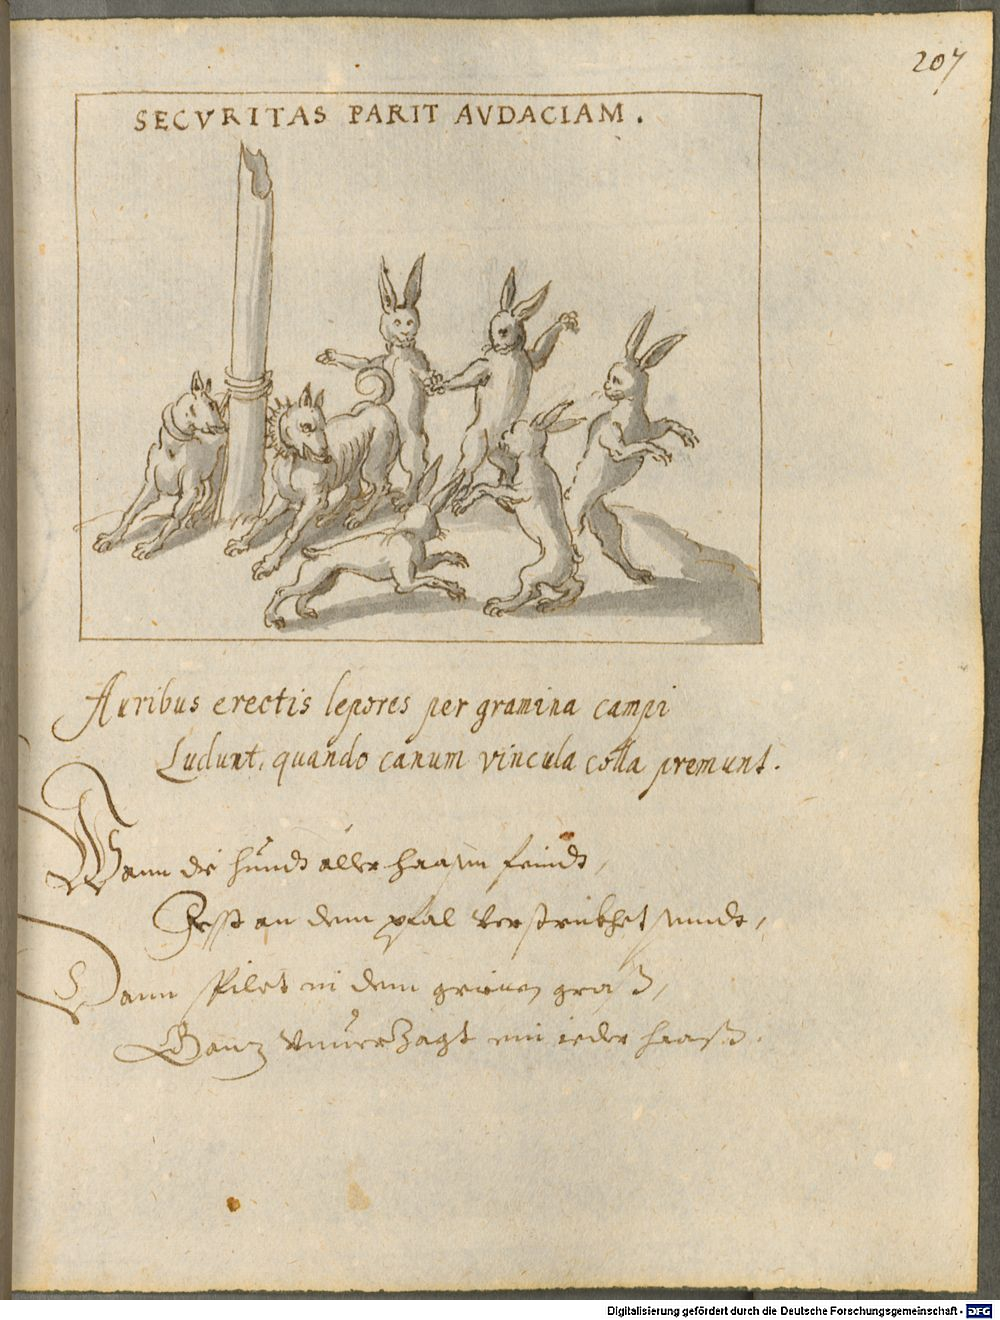 207
SECVRITAS PARIT AVDACIAM.
Auribus erectis lepores per gramina campi
Ludunt, quando canum vincula colla premunt.
Wann die hundt aller haasen feindt,
Fesst an dem pfal verstrickhet seindt,
Dann spilet in dem grienen graß,
Gantz vnuerzagt ein ieder haaß.
Digitalisierung gefördert durch die Deutsche Forschungsgemeinschaft - DFG